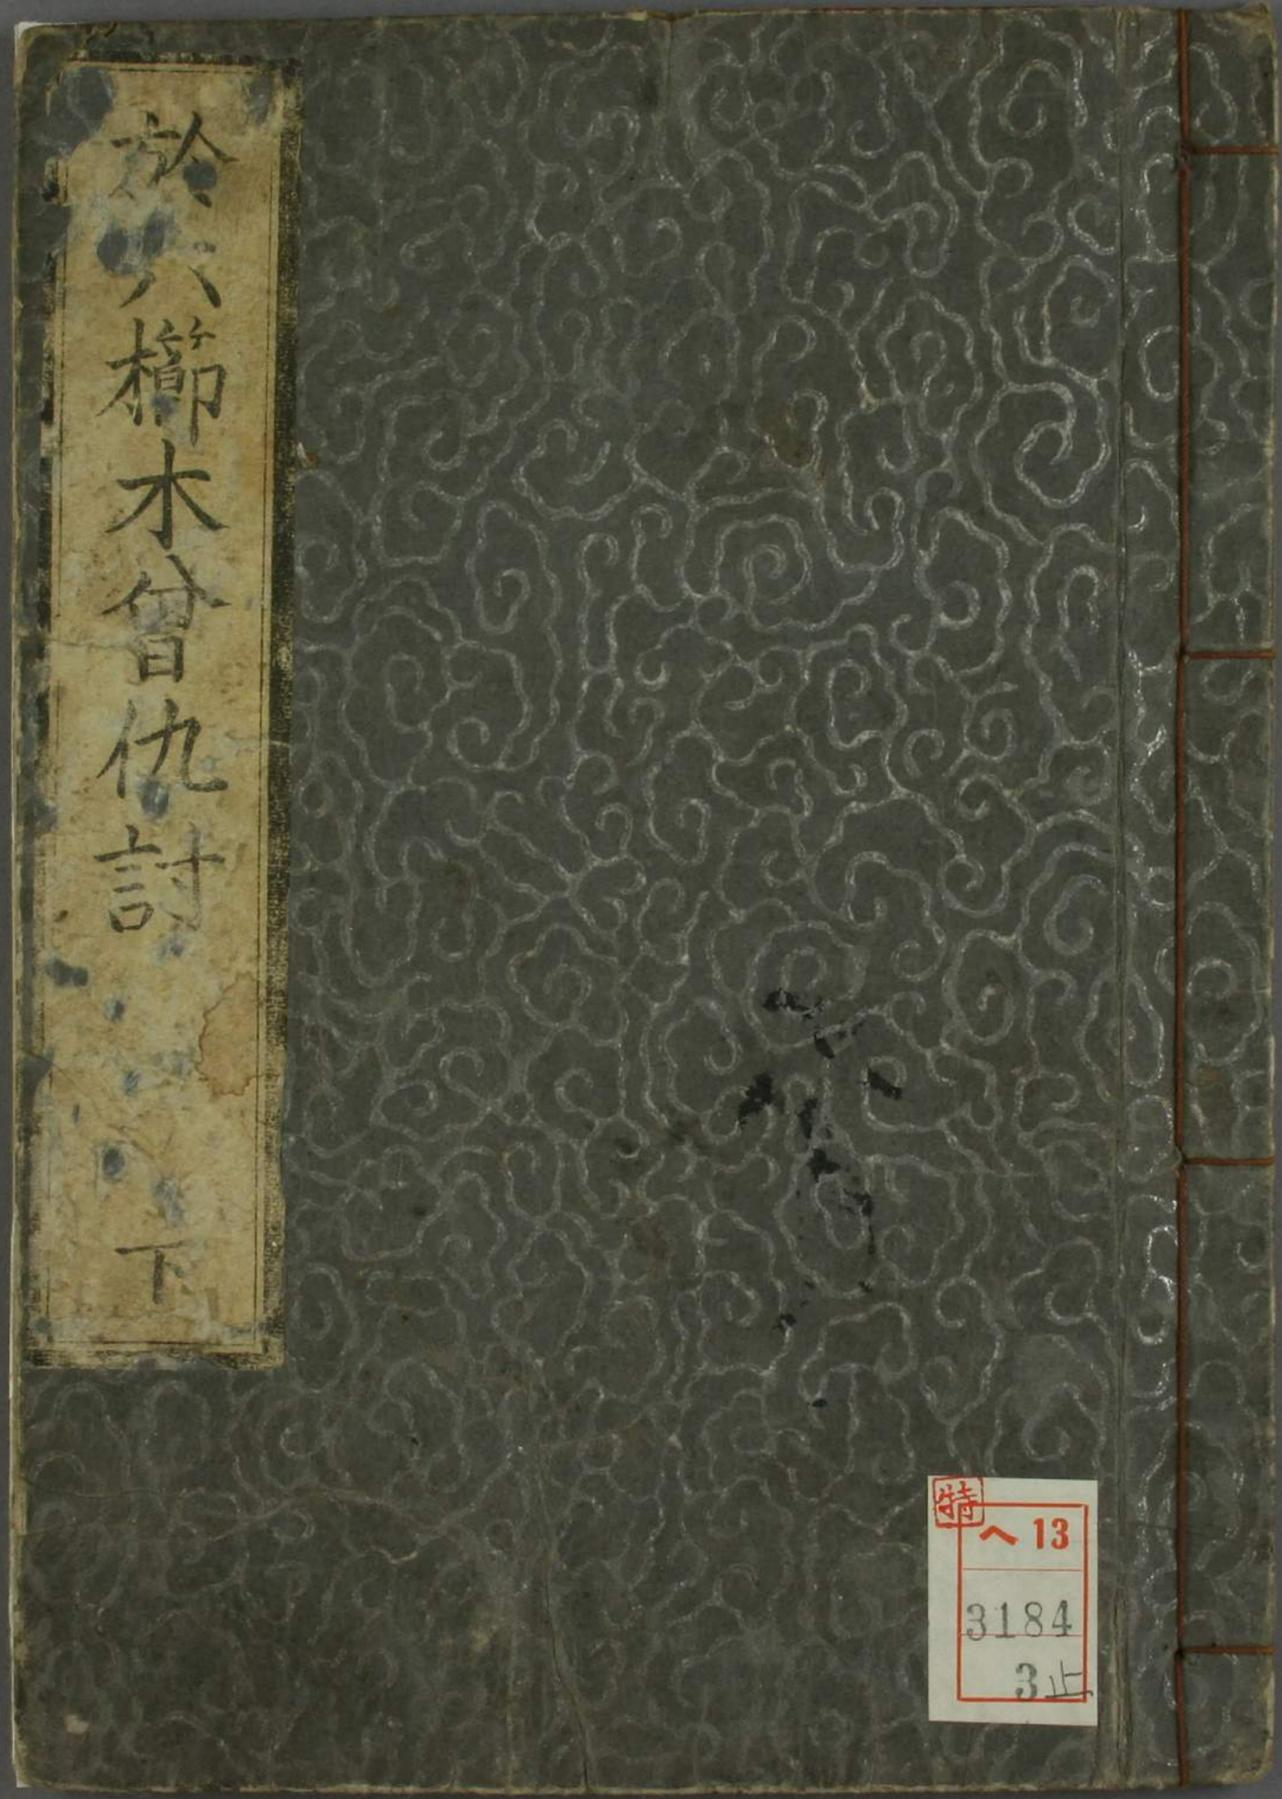 於六櫛木曾仇討 下
特
ヘ13
3184
3止